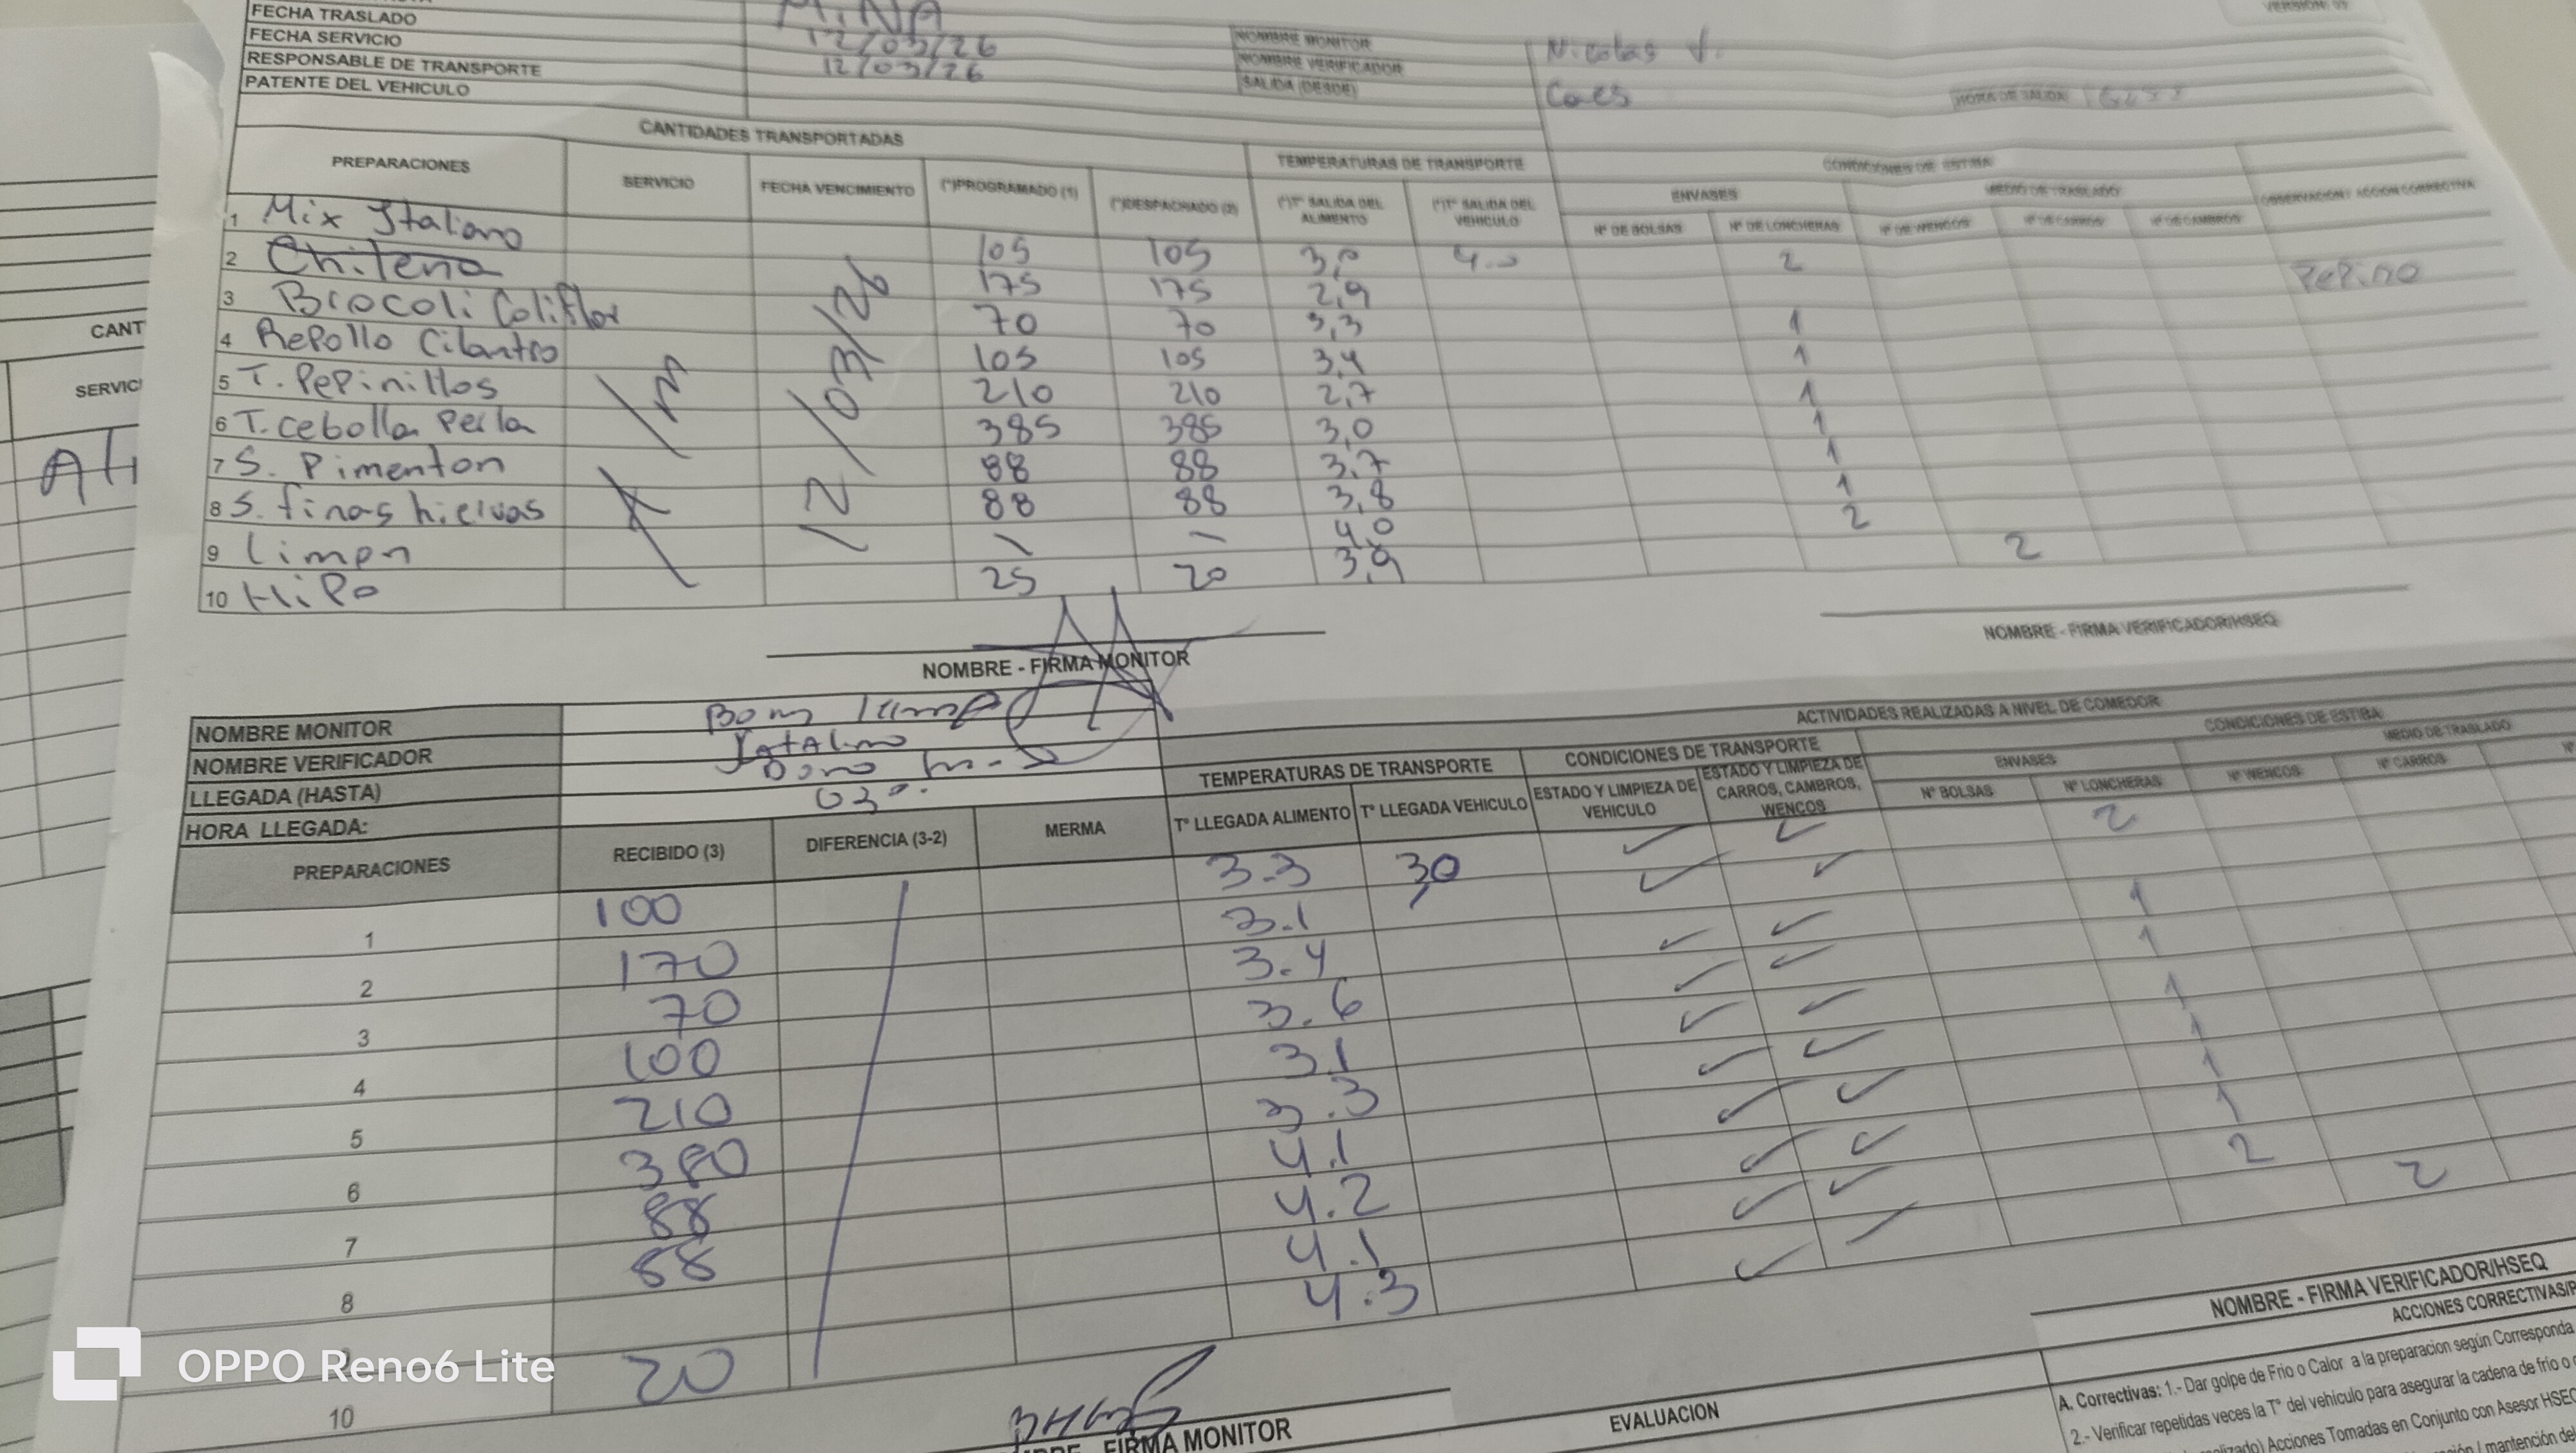 VERSION: 03
MINA
FECHA TRASLADO 12/03/26 NOMBRE MONITOR Nicolas V.
FECHA SERVICIO 12/03/26 NOMBRE VERIFICADOR
RESPONSABLE DE TRANSPORTE SALIDA (DESDE) HORA DE SALIDA
PATENTE DEL VEHICULO
CANTIDADES TRANSPORTADAS TEMPERATURAS DE TRANSPORTE CONDICIONES DE ESTIBA
ENVASES MEDIO DE TRASLADO OBSERVACION / ACCION CORRECTIVA
PREPARACIONES SERVICIO FECHA VENCIMIENTO (*)PROGRAMADO (1) (*)DESPACHADO (2) (*)T° SALIDA DEL ALIMENTO (*)T° SALIDA DEL VEHICULO N° DE BOLSAS N° DE LONCHERAS N° DE WENCOS N° DE CARROS N° DE CAMBROS
1 Mix Italiano 105 105 3,0 4.0 2
2 Chilena 175 175 2,9 Pepino
3 Brocoli Coliflor 70 70 3,3 1
4 Repollo Cilantro 105 105 3,4 1
5 T. Pepinillos 210 210 2,7 1
6 T. cebolla Perla 385 385 3,0 1
7 S. Pimenton 88 88 3,7 1
8 S. finas hiervas 88 88 3,8 1
9 limon - - 4,0 2
10 Hipo 25 20 3,9 2
12/03/26
NOMBRE - FIRMA MONITOR NOMBRE - FIRMA VERIFICADOR/HSEQ
NOMBRE MONITOR
NOMBRE VERIFICADOR
LLEGADA (HASTA)
HORA LLEGADA:
ACTIVIDADES REALIZADAS A NIVEL DE COMEDOR
TEMPERATURAS DE TRANSPORTE CONDICIONES DE TRANSPORTE CONDICIONES DE ESTIBA
ENVASES MEDIO DE TRASLADO
PREPARACIONES RECIBIDO (3) DIFERENCIA (3-2) MERMA T° LLEGADA ALIMENTO T° LLEGADA VEHICULO ESTADO Y LIMPIEZA DE VEHICULO ESTADO Y LIMPIEZA DE CARROS, CAMBROS, WENCOS N° BOLSAS N° LONCHERAS N° WENCOS N° CARROS N°
1 100 3.3 3,0 2
2 170 3.1
3 70 3.4 1
4 100 3.6 1
5 210 3.1 1
6 380 3.3 1
7 88 4.1 1
8 88 4.2 1
4.1 2
10 20 4.3 2
FIRMA MONITOR NOMBRE - FIRMA VERIFICADOR/HSEQ
EVALUACION
ACCIONES CORRECTIVAS/P
A. Correctivas: 1.- Dar golpe de Frio o Calor a la preparacion según Corresponda
2.- Verificar repetidas veces la T° del vehiculo para asegurar la cadena de frío o
Acciones Tomadas en Conjunto con Asesor HSEQ
mantención de
CANT
SERVICI
OPPO Reno6 Lite